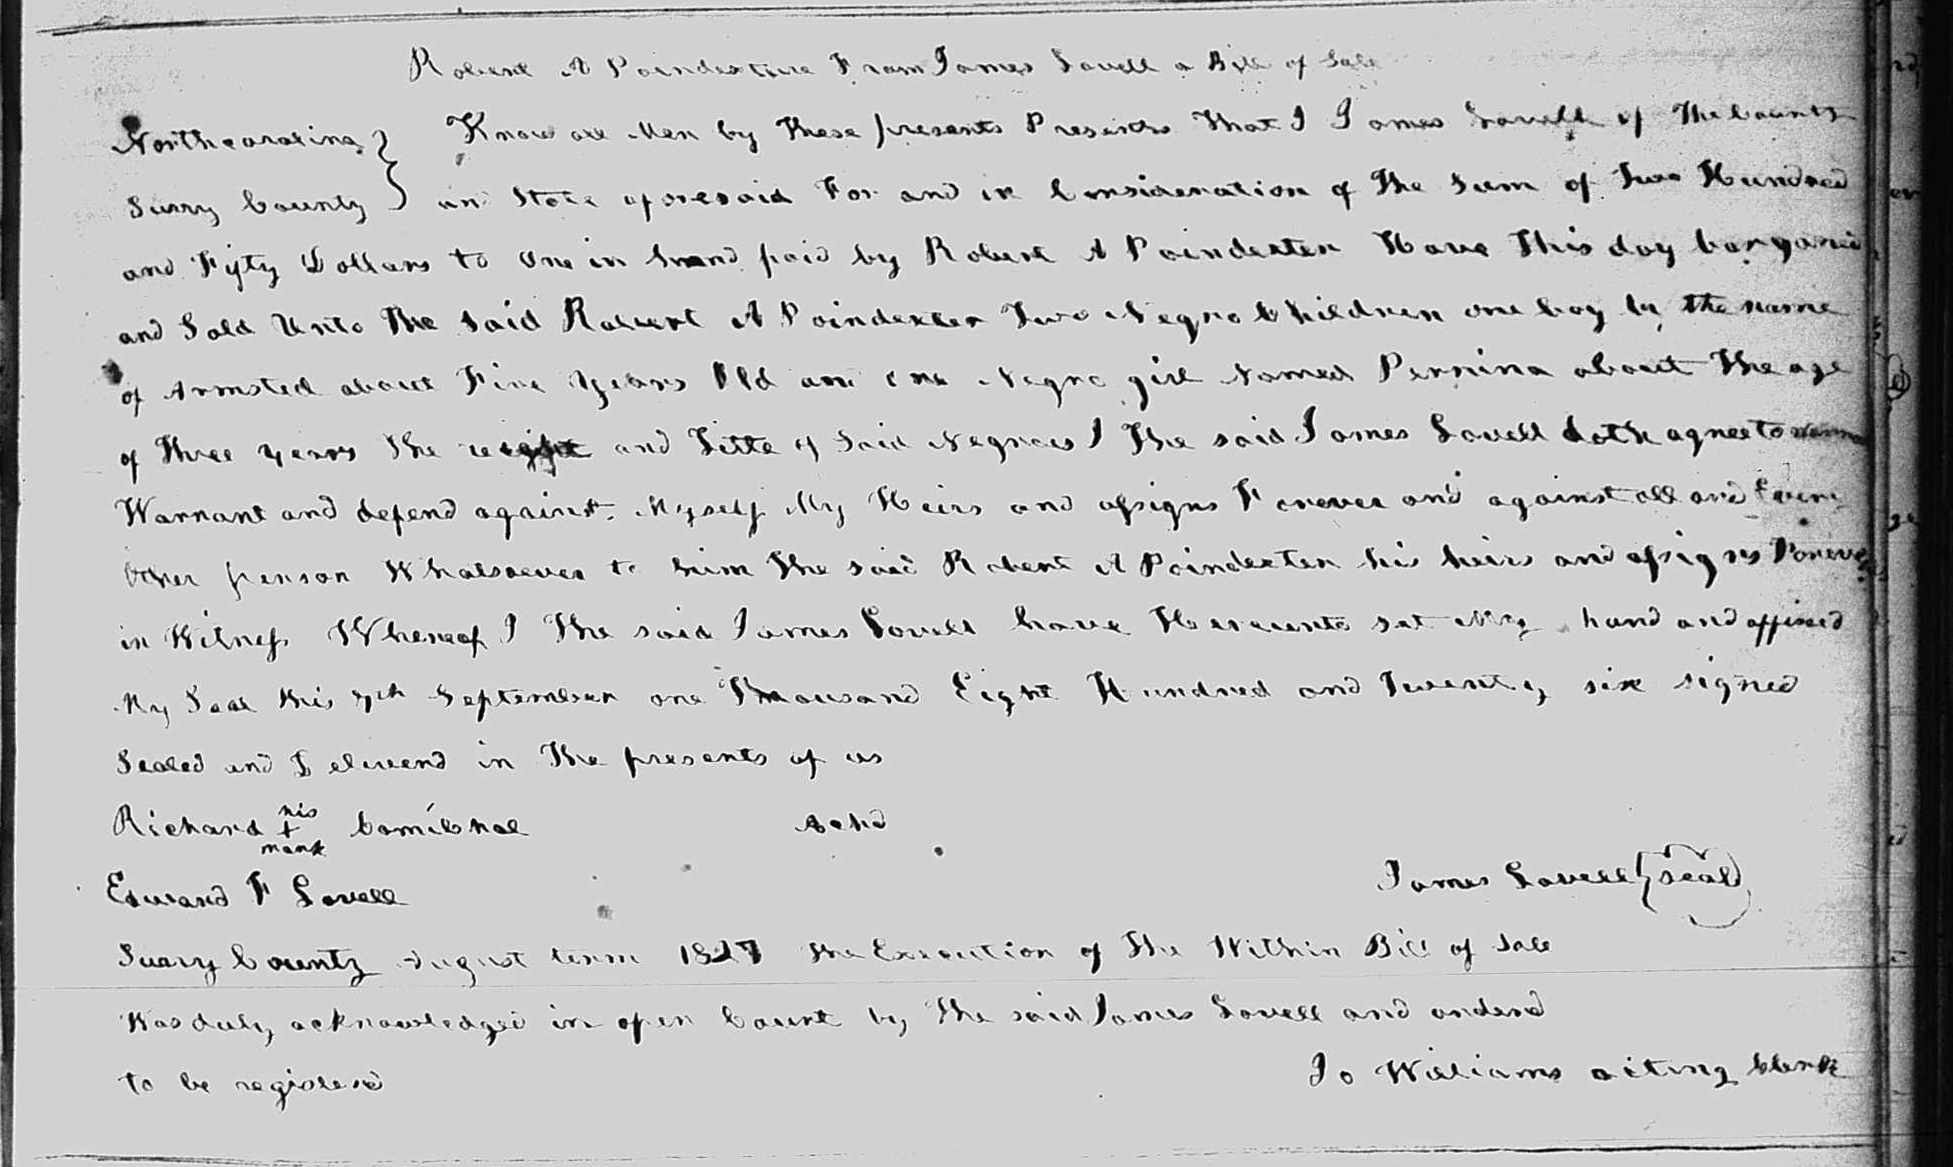 Robert A Poindexture From James Lovell a Bill of Sale
Northcarolina } Know all Men by These presents Presents That I James Lovell of The County
Surry County } an State aforesaid For and in Consideration of The Sum of Two Hundred
and Fifty Dollars to me in hand paid by Robert A Poindexter Have This day barganed
and Sold Unto The Said Robert A Poindexter Two Negro Children one boy by the name
of Armsted about Five Years Old and one Negro girl Named Pernina about The age
of Three years The right and Title of Said Negroes I The said James Lovell doth agree to
Warrant and defend against Myself My Heirs and assigns Forever and against all and Every
Other person Whatsoever to him The said Robert A Poindexter his heirs and assigns Forever
in Witness Whereof I The said James Lovell have Hereunto set My hand and affixed
My Seal this 7th September one Thousand Eight Hundred and Twenty six signed
Sealed and Deliverd in The presents of us
Richard his + mark
Ackd
Edward F Lovell
James Lovell {seal}
Surry County August term 1827 The Execution of The Within Bill of Sale
Was duly acknowledged in open Court by The said James Lovell and orderd
to be registerd
Jo Williams acting Clerk